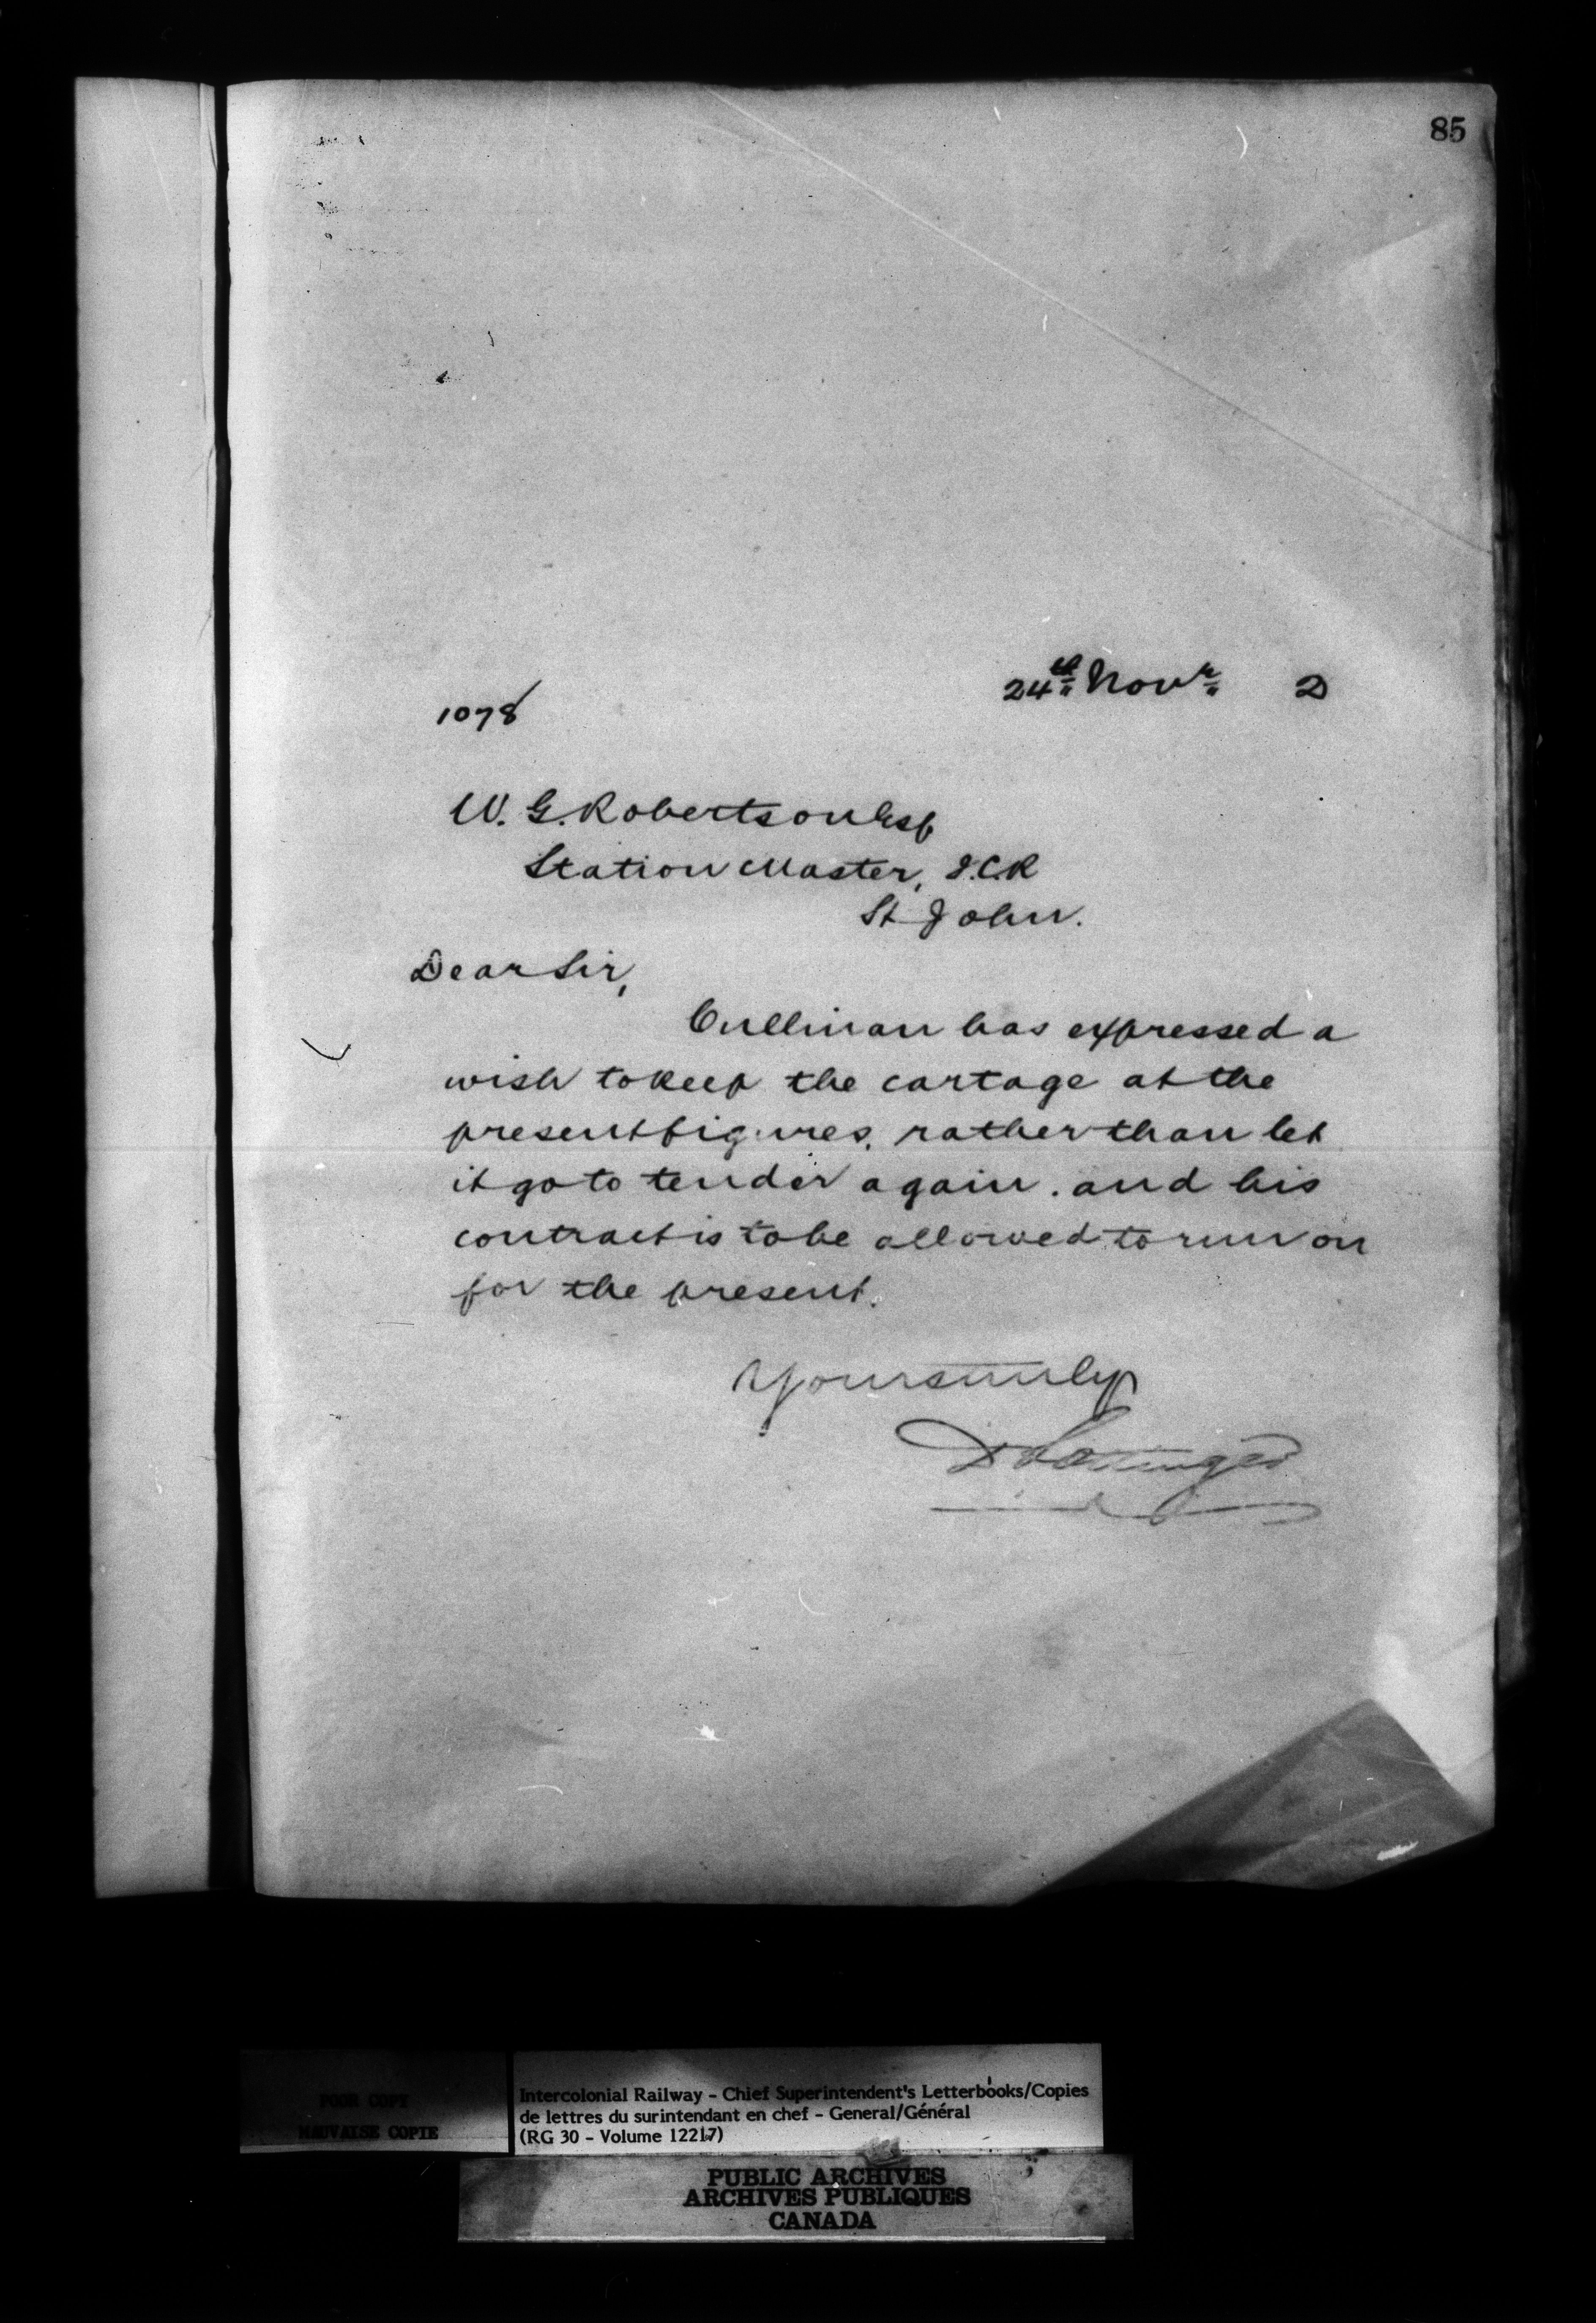 85
24th Novr 2
1078
W. G. Robertson Esq
Station Master, I.C.R
St John.
Dear Sir,
Cullinan has expressed a
wish to keep the cartage at the
present figures, rather than let
it go to tender again. and his
contract is to be allowed to run on
for the present.
Yours truly
D Pottinger
POOR COPY
MAUVAISE COPIE
Intercolonial Railway - Chief Superintendent's Letterbooks/Copies
de lettres du surintendant en chef - General/Général
(RG 30 - Volume 12217)
PUBLIC ARCHIVES
ARCHIVES PUBLIQUES
CANADA